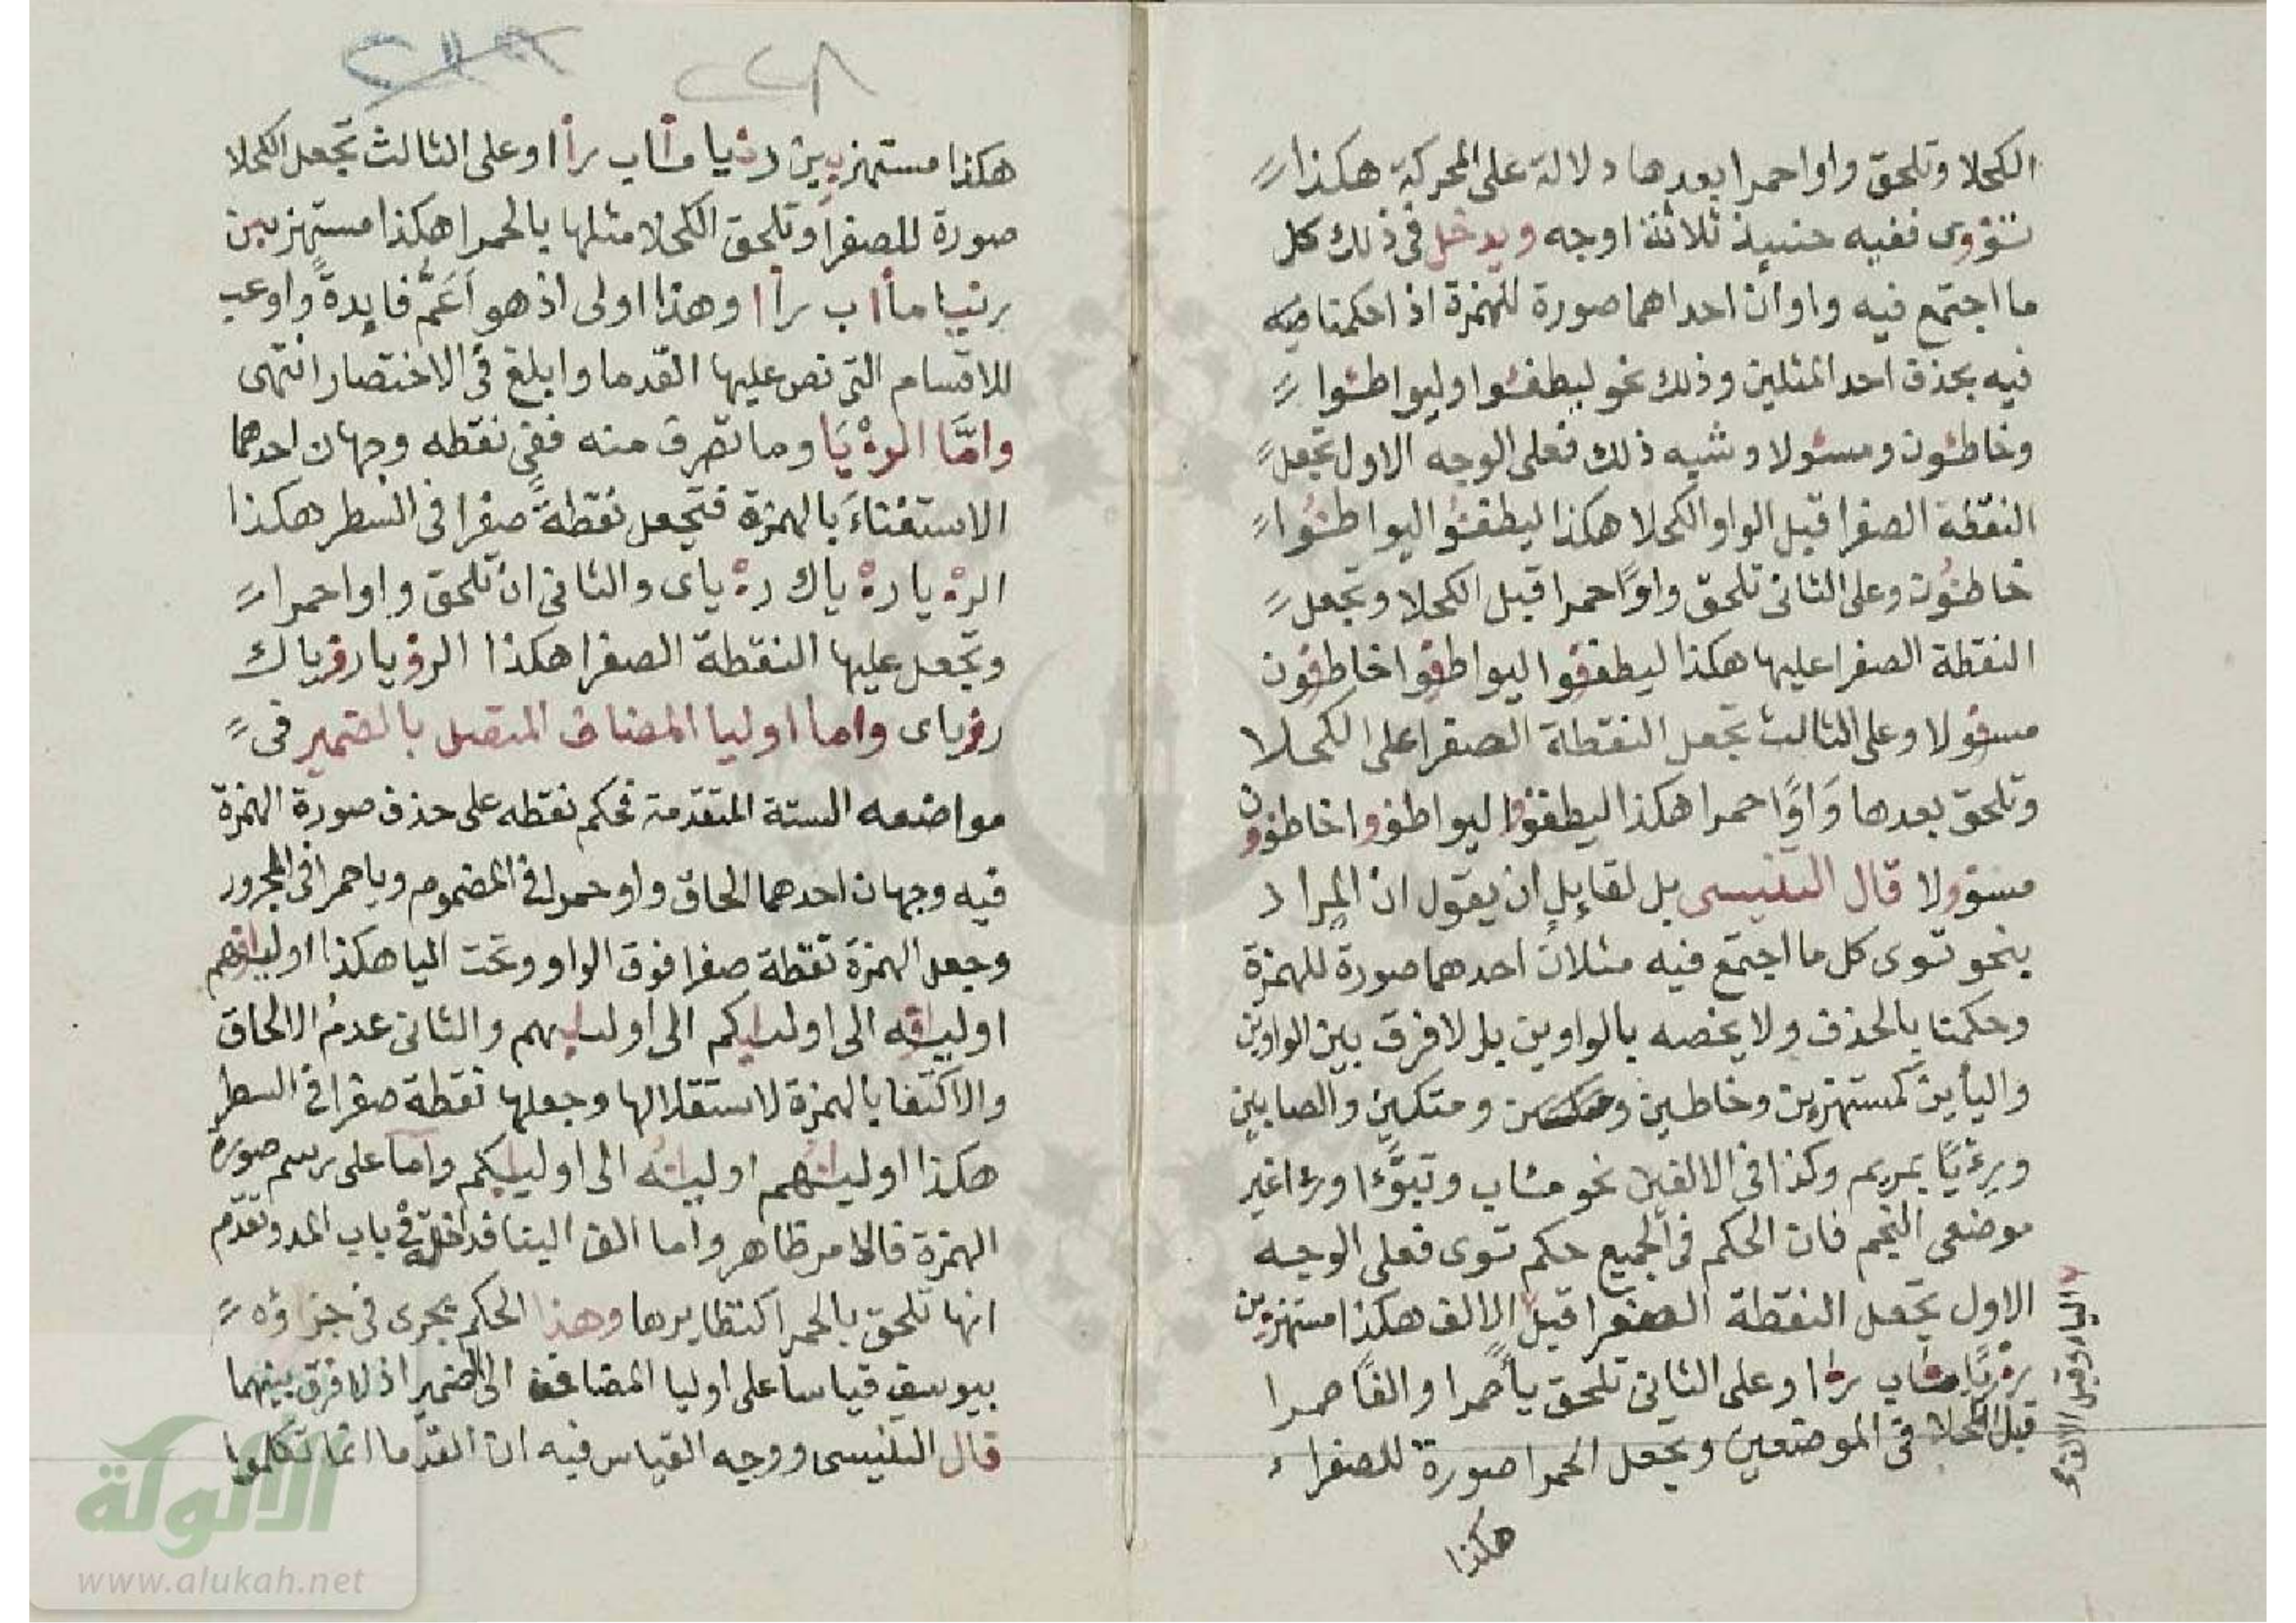 الكحلا وتلحق واوا حمرا بعدها دلالة على المحركة هكذا
تؤوى ففيه حنيئذ ثلاثة اوجه ويدخل فى ذلك كل
ما اجتمع فيه واوان احداهما صورة للهمزة اذ احكمنا
فيه بحذف احد المثلين وذلك نحو ليطفئوا وليواطئوا
وخاطئون ومسئولا وشبه ذلك فعلى الوجه الاول تجعل
النقطة الصفرا قبل الواو الكحلا هكذا ليطفئوا ليواطئوا
خاطئون وعلى الثانى تلحق واوًا حمرا قبل الكحلا وتجعل
النقطة الصفرا عليها هكذا ليطفؤوا ليواطؤوا خاطؤون
مسؤولا وعلى الثالث تجعل النقطة الصفرا على الكحلا
وتلحق بعدها وَاوًا حمرا هكذا ليطفؤوا ليواطؤوا خاطؤون
مسؤولا قال التنيسى بل لقايل ان يقول ان المراد
بنحو تؤى كل ما اجتمع فيه مثلان احدهما صورة للهمزة
وحكمنا بالحذف ولا يخصه بالواوين بل لا فرق بين الواوين
واليأين كمستهزءين وخاطين ومتكين والصابين
ورءيًا بمريم وكذا فى الالفين نحو مئاب وتبوَّءا ورءا غير
موضعى النجم فان الحكم فى الجميع حكم تؤى فعلى الوجه
الاول تجعل النقطة الصفرا قبل الالف هكذا مستهزءين
رءيًا مئاب رءا وعلى الثانى تلحق يأ حمرا والفًا حمرا
قبل الكحلا فى الموضعين وتجعل الحمرا صورة للصفراء
اليا وقبل الالف
هكذا
٢٢٨
هكذا مستهزيين رئيا مأاب رأا وعلى الثالث تجعل الكحلا
صورة للصفرا وتلحق الكحلا مثلها بالحمرا هكذا مستهزيين
رييا مأاب رأا وهذا اولى اذ هو اَعَمُّ فايدةً واوعب
للاقسام التى نص عليها القدما وابلغ فى الاختصار انتهى
وامَّا الرءْيَا وما تصرف منه ففى نقطه وجهان احدهما
الاستغناءَ بالهمزة فتجعل نقطةً صفرا فى السطر هكذا
الرءْيا رءْياك رءْياى والثانى ان تلحق واوا حمرا
وتجعل عليها النقطة الصفرا هكذا الرؤيا رؤياك
رؤياى واما اوليا المضاف المتصل بالضمير فى
مواضعه الستة المتقدمة فحكم نقطه على حذف صورة الهمزة
فيه وجهان احدهما الحاق واو حمرا فى المضموم ويا حمرا فى المجرور
وجعل الهمزة نقطة صفرا فوق الواو وتحت اليا هكذا اولياؤهم
اولياؤه الى اوليايكم الى اوليايهم والثانى عدمُ الالحاق
والاكتفا بالهمزة لاستقلالها وجعلها نقطة صفرا فى السطر
هكذا اولياءُهم اولياءُه الى اوليايكم واما على رسم صورة
الهمزة فالامر ظاهر واما الف البنا فداخلة فى باب المد وتقدم
انها تلحق بالحمرا كنظايرها وهذا الحكم يجرى فى جزاؤه
بيوسف قياسا على اوليا المضاف الى الضمير اذ لا فرق بينهما
قال التنيسى ووجه القياس فيه ان القدما انما تكلموا
الألوكة
www.alukah.net